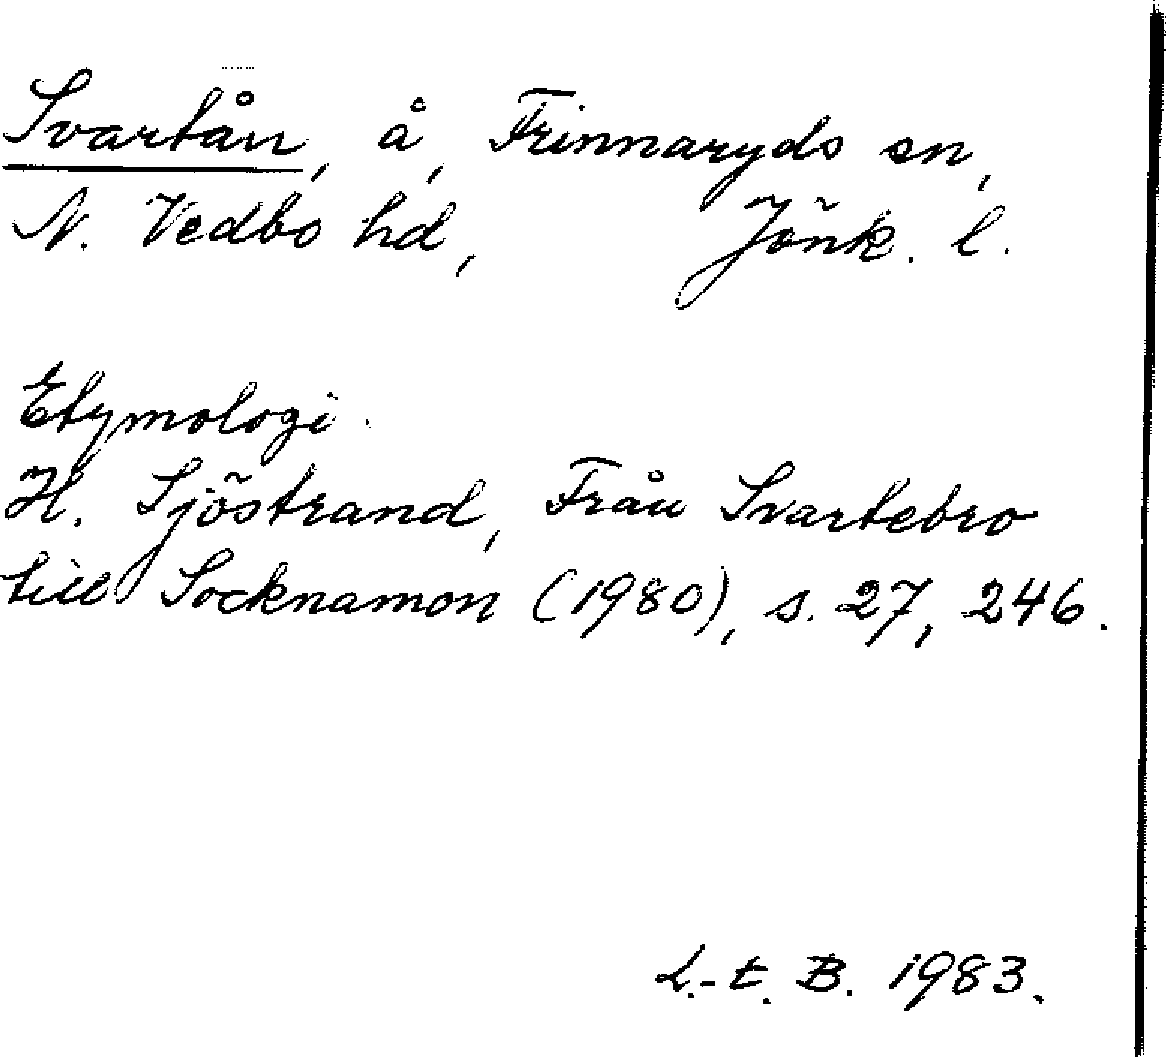 Svartån, å, Frinnaryds sn,
N. Vedbo hd, Jönk. l.
Etymologi.
H. Sjöstrand, Från Svartebro
till Socknamon (1980), s. 27, 246.
L.-E. B. 1983.